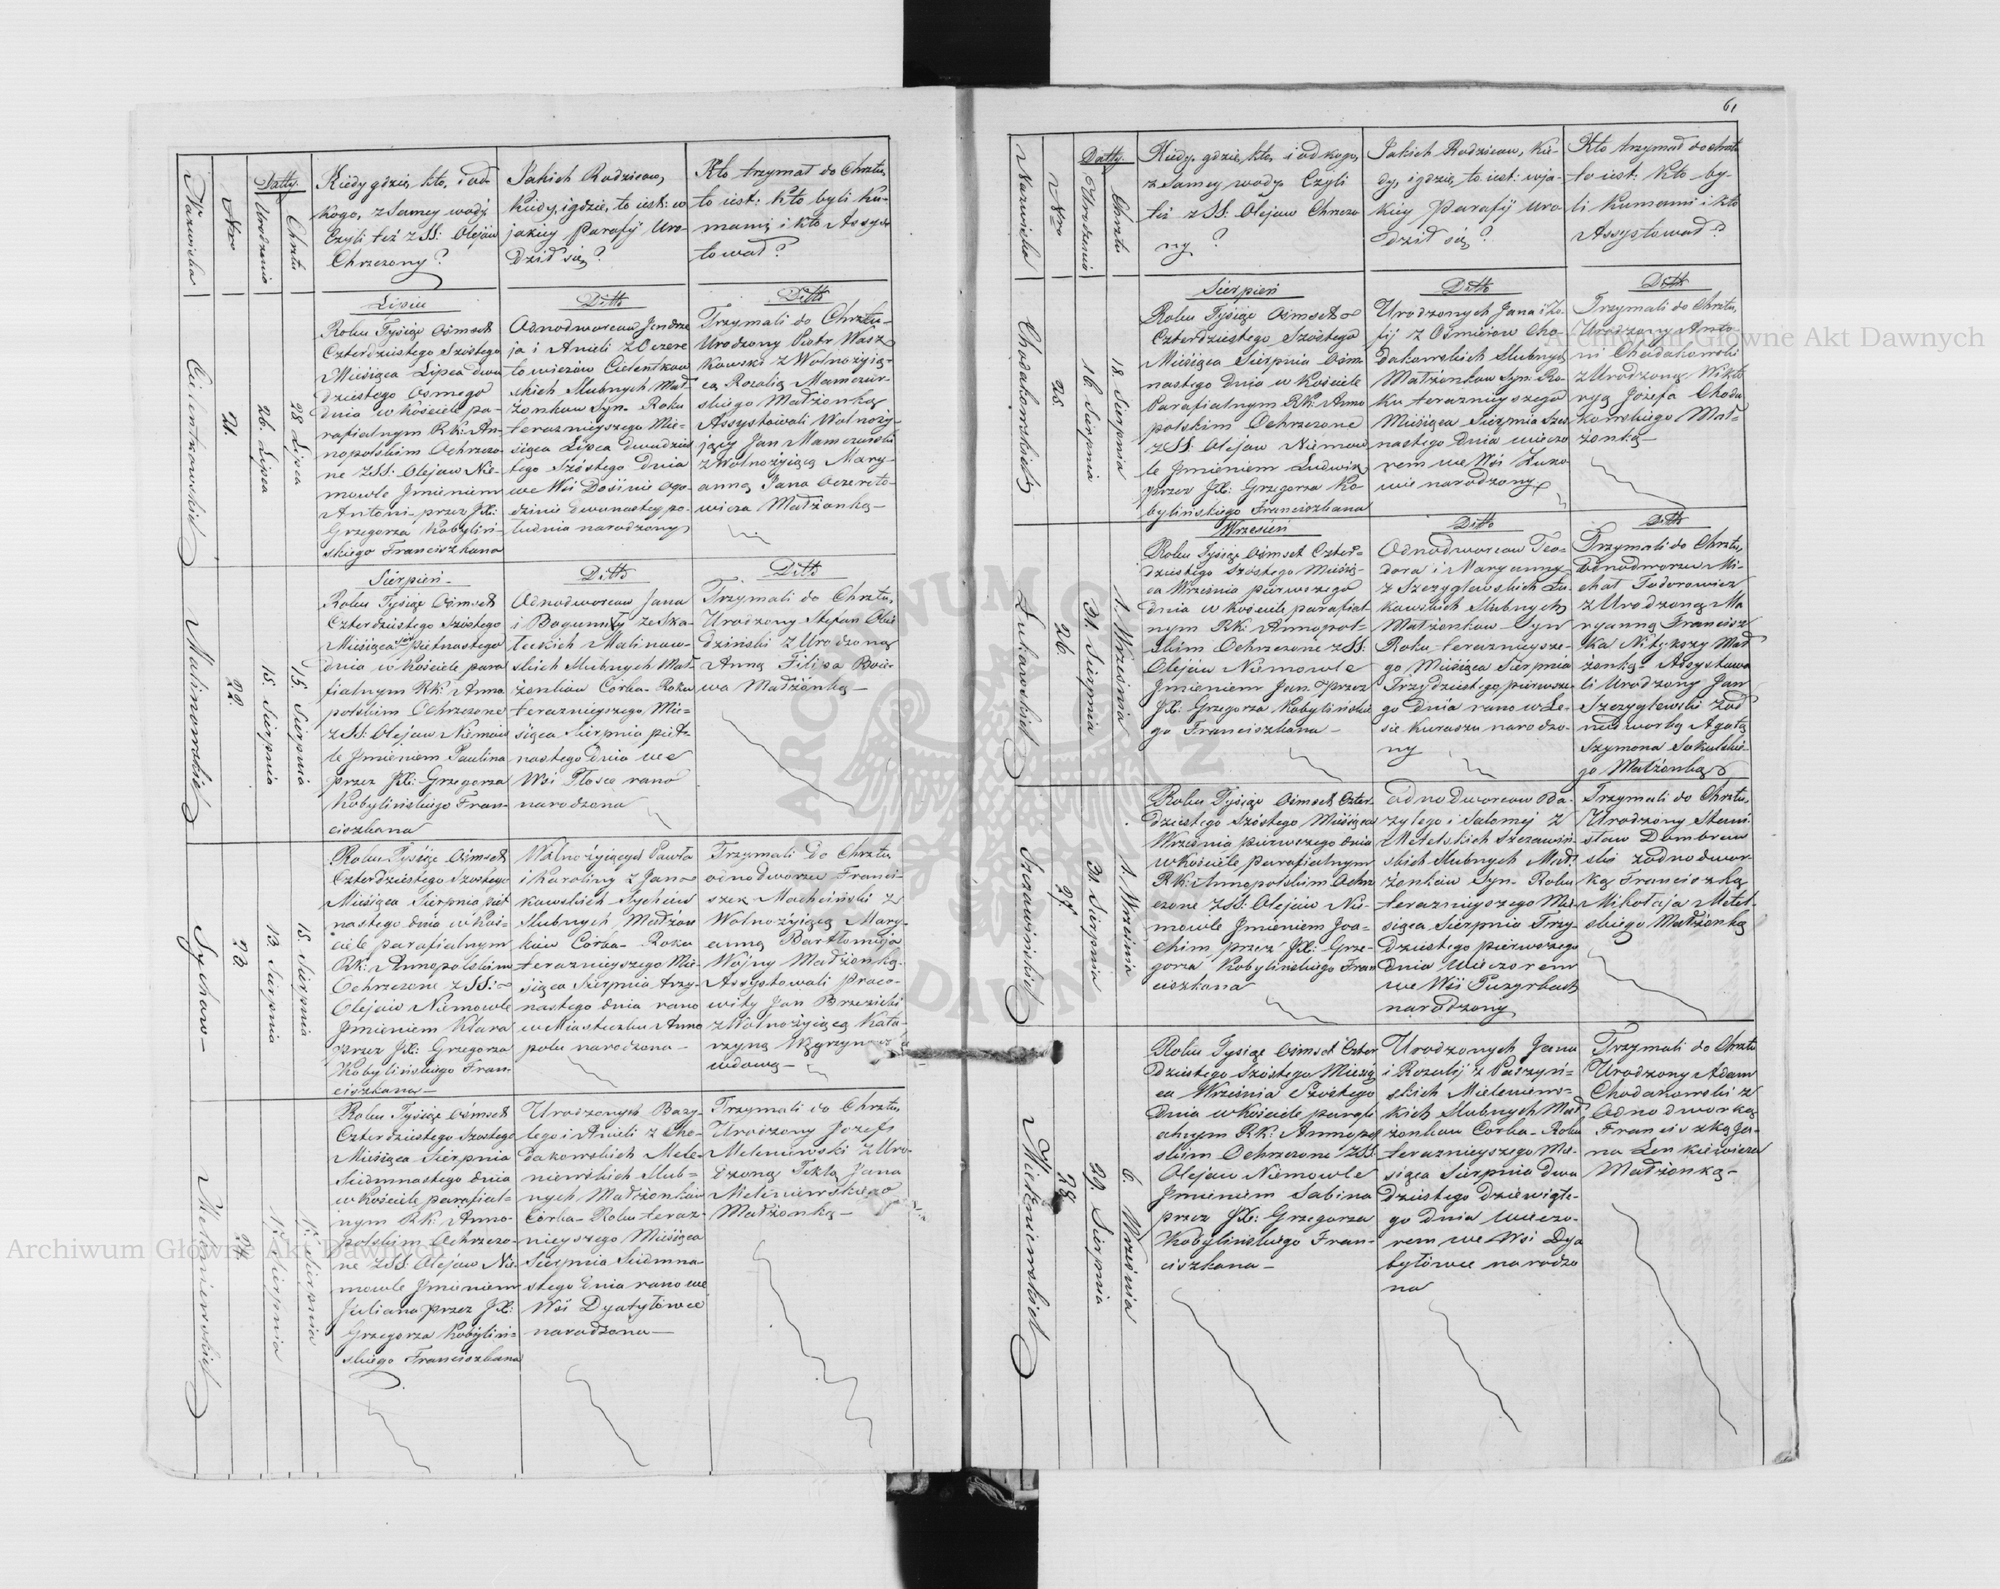 Nazwiska
Nro
Datty
Urodzenia
Chrztu
Kiedy gdzie, kto, i od
kogo, z Samey wody
Czyli też z SS: Olejów
Chrzczony?
Jakich Rodziców,
kiedy, i gdzie, to iest: w
jakiey Parafij Uro-
dził się?
Kto trzymał do Chrztu,
to iest: kto byli Ku-
mami i kto Assys-
tował?
Cielentkowskiel
21.
26. Lipca
28 Lipca
Lipiec
Roku Tysiąc Ośmset
Czterdziestego Szóstego
Miesiąca Lipca dwu
dziestego Osmego
dnia w kościele pa-
rafialnym RK: An-
nopolskim Ochrzczo-
ne z SS: Olejów Nie-
mowle Jmieniem
Antoni przez JX:
Grzegorza Kobyliń-
skiego Franciszkana
Ditto
Odnodworców Jendrze
ja i Anieli z Oczere
towiczów Cielentkow
skich Slubnych Mał
żonków Syn- Roku
teraznieyszego Mie-
siąca Lipca dwudzies
tego Szóstego Dnia
we Wsi Dośinie ogo-
dzinie dwunastey po-
łudnia narodzony
Ditto
Trzymali do Chrztu-
Urodzony Piotr Wasz
kowski z Wolnożyią-
cą Rozalią Mamczur-
skiego Małżonką
Assystowali Wolnoży-
jący Jan Mamczurski
z Wolnożyiącą Mary-
anną Jana Oczereto-
wicza Małżonką-
Malinowskiel
22.
15. Sierpnia
15. Sierpnia
Sierpień-
Roku Tysiąc Ośmset
Czterdziestego Szóstego
Miesiąca Sier: Piętnastego
dnia w kościele para
fialnym RK: Anno
polskim Ochrzczone
z SS: Olejów Niemow
le Jmieniem Paulina
przez JX: Grzegorza
Kobylińskiego Fran-
ciszkana
Ditto
Odnodworców Jana
i Bogumiły ze Ska-
teckich Malinow-
skich Slubnych Mał-
żonków Córka- Roku
teraznieyszego Mie-
siąca Sierpnia pięt-
nastego Dnia we
Wsi Płosce rano
narodzona
Ditto
Trzymali do Chrztu
Urodzony Stefan
z Urodzoną
Anną Filipa
Małżonką-
Sychow-
23
13. Sierpnia
15. Sierpnia
Roku Tysiąc Ośmset
Czterdziestego Szostego
Miesiąca Sierpnia pięt
nastego dnia w Koś-
ciele parafialnym
RK: Annopolskim
Ochrzczone z SS:
Olejów Niemowle
Jmieniem Klara
przez JX: Grzegorza
Kobylińskiego Fran-
ciszkana-
Wolnożyiących Pawła
i Karoliny z Jan-
kowskich Sychów
Slubnych Małżon
ków Córka- Roku
teraznieyszego Mie-
siąca Sierpnia trzy-
nastego dnia rano
w Miasteczku Anno
polu narodzona-
Trzymali Do Chrztu
odnodworzec Franci-
szek Machciński z
Wolnożyiącą Mary-
anną Bartłomieja
Wojny Małżonką-
Assystowali Praco-
wity Jan Bruzicki
z Wolnożyiącą Kata-
rzyną
wdową-
Meleniewskiel
24.
17. Sierpnia
17. Sierpnia
Roku Tysiąc Ośmset
Czterdziestego Szostego
Miesiąca Sierpnia
Siedmnastego dnia
w kościele parafial-
nym RK: Anno-
polskim Ochrzczo-
ne z SS: Olejów Nie-
mowle Jmieniem
Juliana przez JX:
Grzegorza Kobyliń-
skiego Franciszkana
Urodzonych Bazy-
lego i Anieli z Cho-
dakowskich Mele-
niewskich Slub-
nych Małżonków
Córka- Roku teraz-
nieyszego Miesiąca
Sierpnia Siedmna-
stego Dnia rano we
Wsi Dyatyłówce
narodzona-
Trzymali do Chrztu
Urodzony Jozef
Meleniewski z Uro-
dzoną Teklą Jana
Meleniewskiego
Małżonką-
61
Nazwiska
Nro
Datty.
Urodzenia
Chrztu
Kiedy, gdzie, kto, i od kogo,
z Samey wody Czyli
też z SS: Olejów Chrzczo
ny?
Jakich Rodziców, Kie-
dy, i gdzie, to iest: w ja-
kiey Parafij Uro-
dził się?
Kto trzymał do chrztu
to iest: kto by-
li Kumami i kto
Assystował?
Chodakowskiel
25.
16. Sierpnia
18. Sierpnia
Sierpień
Roku Tysiąc Ośmset
Czterdziestego Szóstego
Miesiąca Sierpnia Ośm-
nastego Dnia w Kościele
Parafialnym RK: Anno
polskim Ochrzczone
z SS. Olejów Niemow
le Jmieniem Ludwik
przez JX: Grzegorza Ko
bylińskiego Franciszkana
Ditto
Urodzonych Jana i Zo-
fij z Ośmiiow Cho-
dakowskich Slubnych
Małżonków Syn: Ro-
ku teraznieyszego
Miesiąca Sierpnia Szes
nastego Dnia wieczo
rem we Wsi Żuko
wie narodzony
Ditto
Trzymali do Chrztu,
Urodzony Anto-
ni Chodakowski
z Urodzoną Wikto
ryą Józefa Choda
kowskiego Mał-
żonką-
Łukowskiel
26.
31. Sierpnia
1. Września
Wrzesień
Roku Tysiąc Ośmset Czter-
dziestego Szóstego Miesią-
ca Września pierwszego
dnia w kościele parafial
nym RK: Annopol-
skim Ochrzczone z SS:
Olejów Niemowle
Jmieniem Jan przez
JX: Grzegorza Kobylińskie
go Franciszkana-
Ditto
Odnodworców Teo-
dora i Maryanny
z Szczygłowskich Łu-
kowskich Slubnych
Małżonków Syn
Roku teraznieysze-
go Miesiąca Sierpnia
Trzydziestego, pierwsze
go Dnia rano w Le-
sie Kuraszu narodzo-
ny
Ditto
Trzymali do Chrztu,
Odnodworzec Mi-
chał Todorowicz
z Urodzoną Ma
ryanną Francisz
ka Mał
żonką- Assystowa
li Urodzony Jan
Szczygłewski z od
nodworką Agatą
Szymona Sokolskie-
go Małżonką
Szczawińskiel
27
31. Sierpnia
1. Września
Roku Tysiąc Ośmset Czter-
dziestego Szóstego Miesiąca
Września pierwszego dnia
w kościele parafialnym
RK: Annopolskim Ochrz
czone z SS: Olejów Nie-
mowle Jmieniem Joa-
chim, przez JX: Grze-
gorza Kobylińskiego Fran
ciszkana
Odnodworców Ba-
zylego i Salomej z
Metelskich Szczawiń-
skich Slubnych Mał
żonków Syn- Roku
teraznieyszego Mie-
siąca Sierpnia Trzy-
Dziestego pierwszego
Dnia wieczorem
we Wsi Puzyrkach
narodzony
Trzymali do Chrztu,
Urodzony Stani-
sław Dombrow
ski z odnodwor-
ką Franciszką
Mikołaja Metel-
skiego Małżonką
Meleniewskiel
28.
29. Sierpnia
6. Września
Roku Tysiąc Ośmset Czter
dziestego Szóstego Miesią
ca Września Szóstego
Dnia w kościele parafi
alnym RK: Annopol
skim Ochrzczone z SS
Olejów Niemowle
Jmieniem Sabina
przez JX: Grzegorza
Kobylińskiego Fran-
ciszkana-
Urodzonych Jana
i Rozalij z Padzyń-
skich Meleniews-
kich Slubnych Mał
żonków Córka- Roku
teraznieyszego Mie-
siąca Sierpnia Dwu
dziestego dziewiąte-
go Dnia wieczo-
rem we Wsi Dya
tyłówce narodzo
na
Trzymali do Chrztu
Urodzony Adam
Chodakowski z
Odnodworką
Franciszką Ja-
na Lenkiewicza
Małżonką-
Archiwum Główne Akt Dawnych
Archiwum Główne Akt Dawnych